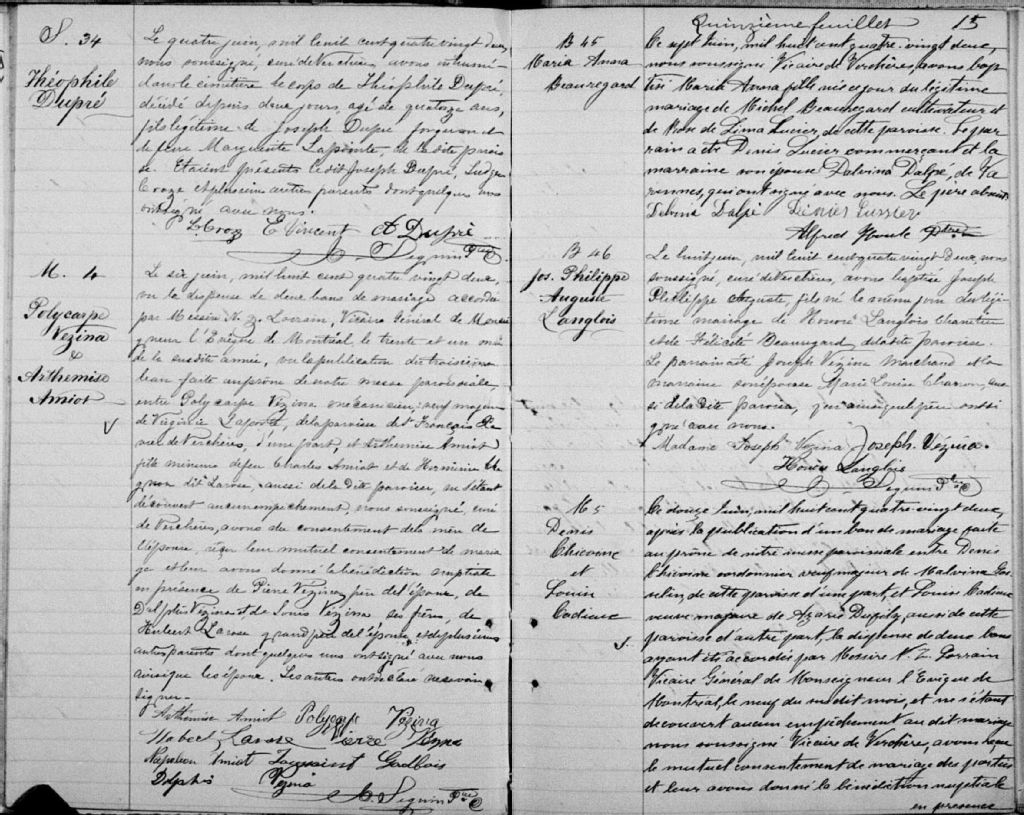 S. 34
Théophile
Dupré
Le quatre juin, mil huit cent quatre vingt deux,
nous soussigné, curé de Verchères, avons inhumé
dans le cimetière le corps de Théophile Dupré,
décédé depuis deux jours, agé de quatorze ans,
fils légitime de Joseph Dupré forgeron et
de feue Marguerite Lapointe, de la dite parois
se. Etaient présents le dit Joseph Dupré, Ludger
Croze et plusieurs autres parents dont quelques uns
ont signé avec nous.
L. Croz E Vincent A Dupré
A. Seguin Ptre
M. 4
Polycarpe
Vézina
&
Arthemise
Amiot
Le six juin, mil huit cent quatre vingt deux,
vu la dispense de deux bans de mariage accordée
par Messire N. Z. Lorrain, Vicaire Général de Monsei
gneur l'Evêque de Montréal, le trente et un mai
de la susdite année, vu la publication du troisième
ban faite au prône de notre messe paroissiale,
entre Polycarpe Vézina mécanicien, veuf majeur
de Virginie Laporte, de la paroisse de St François Xa
vier de Verchères, d'une part, et Arthemise Amiot
fille mineure de feu Charles Amiot et de Herminie
dit Larose, aussi de la dite paroisse, ne s'étant
découvert aucun empêchement, nous soussigné, curé
de Verchères, avons du consentement de la mère de
l'épouse, reçu leur mutuel consentement de maria
ge et leur avons donné la bénédiction nuptiale
en présence de Pierre Vézina père de l'époux, de
Delphis Vézina et de Louis Vézina ses frères, de
Hubert Larose grand père de l'épouse et de plusieurs
autres parents dont quelques uns ont signé avec nous
ainsi que les époux. Les autres ont déclaré ne savoir
signer.
Arthémise Amiot Polycarpe Vézina
Hubert Larose Pierre Vézina
Napoléon Amiot Toussaint
Delphis Vézina
A. Seguin Ptre
Quinzième feuillet 15
B 45
Maria Anna
Beauregard
Ce sept Juin, mil huit cent quatre-vingt deux,
nous soussigné Vicaire de Verchères, avons bap
tisé Maria Anna fille née ce jour du légitime
mariage de Michel Beauregard cultivateur et
de Rose de Lima Lucier, de cette paroisse. Le par
rain a été Denis Lucier commerçant et la
marraine son épouse Dalvina Dalpé, de Va
rennes, qui ont signé avec nous. Le père absent.
Delvina Dalpé Dénier Lussier
Alfred Houle Ptre
B 46
Jos. Philippe
Auguste
Langlois
Le huit juin, mil huit cent quatre vingt deux, nous
soussigné, curé de Verchères, avons baptisé Joseph
Phillippe Auguste, fils né le même jour du légi
time mariage de Honoré Langlois
et de Félicité Beauregard de la dite paroisse.
Le parrain a été Joseph Vézina marchand et la
marraine son épouse Marie Louise Charron, aus
si de la dite paroisse, qui ainsi que le père ont si
gné avec nous.
Madame Joseph Vézina Joseph Vézina.
Honoré Langlois
A. Seguin Ptre
M 5
Denis
Chicoine
et
Louise
Cadieux
Ce douze Juin, mil huit cent quatre vingt deux,
après la publication d'un ban de mariage faite
au prône de notre messe paroissiale entre Denis
Chicoine cordonnier veuf majeur de Malvina Gos
selin, de cette paroisse d'une part, et Louise Cadieux
veuve majeure de Azarie aussi de cette
paroisse d'autre part, la dispense de deux bans
ayant été accordée par Messire N. Z. Lorrain
Vicaire Général de Monseigneur l'Evêque de
Montréal, le neuf du susdit mois, et ne s'étant
découvert aucun empêchement au dit mariage
nous soussigné Vicaire de Verchère, avons reçu
le mutuel consentement de mariage des parties
et leur avons donné la bénédiction nuptiale
en présence